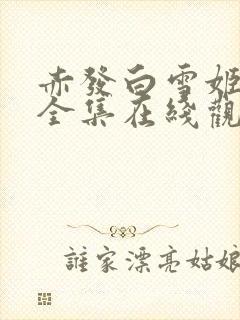 赤發白雪姬
全集在綫觀
誰家漂亮姑娘